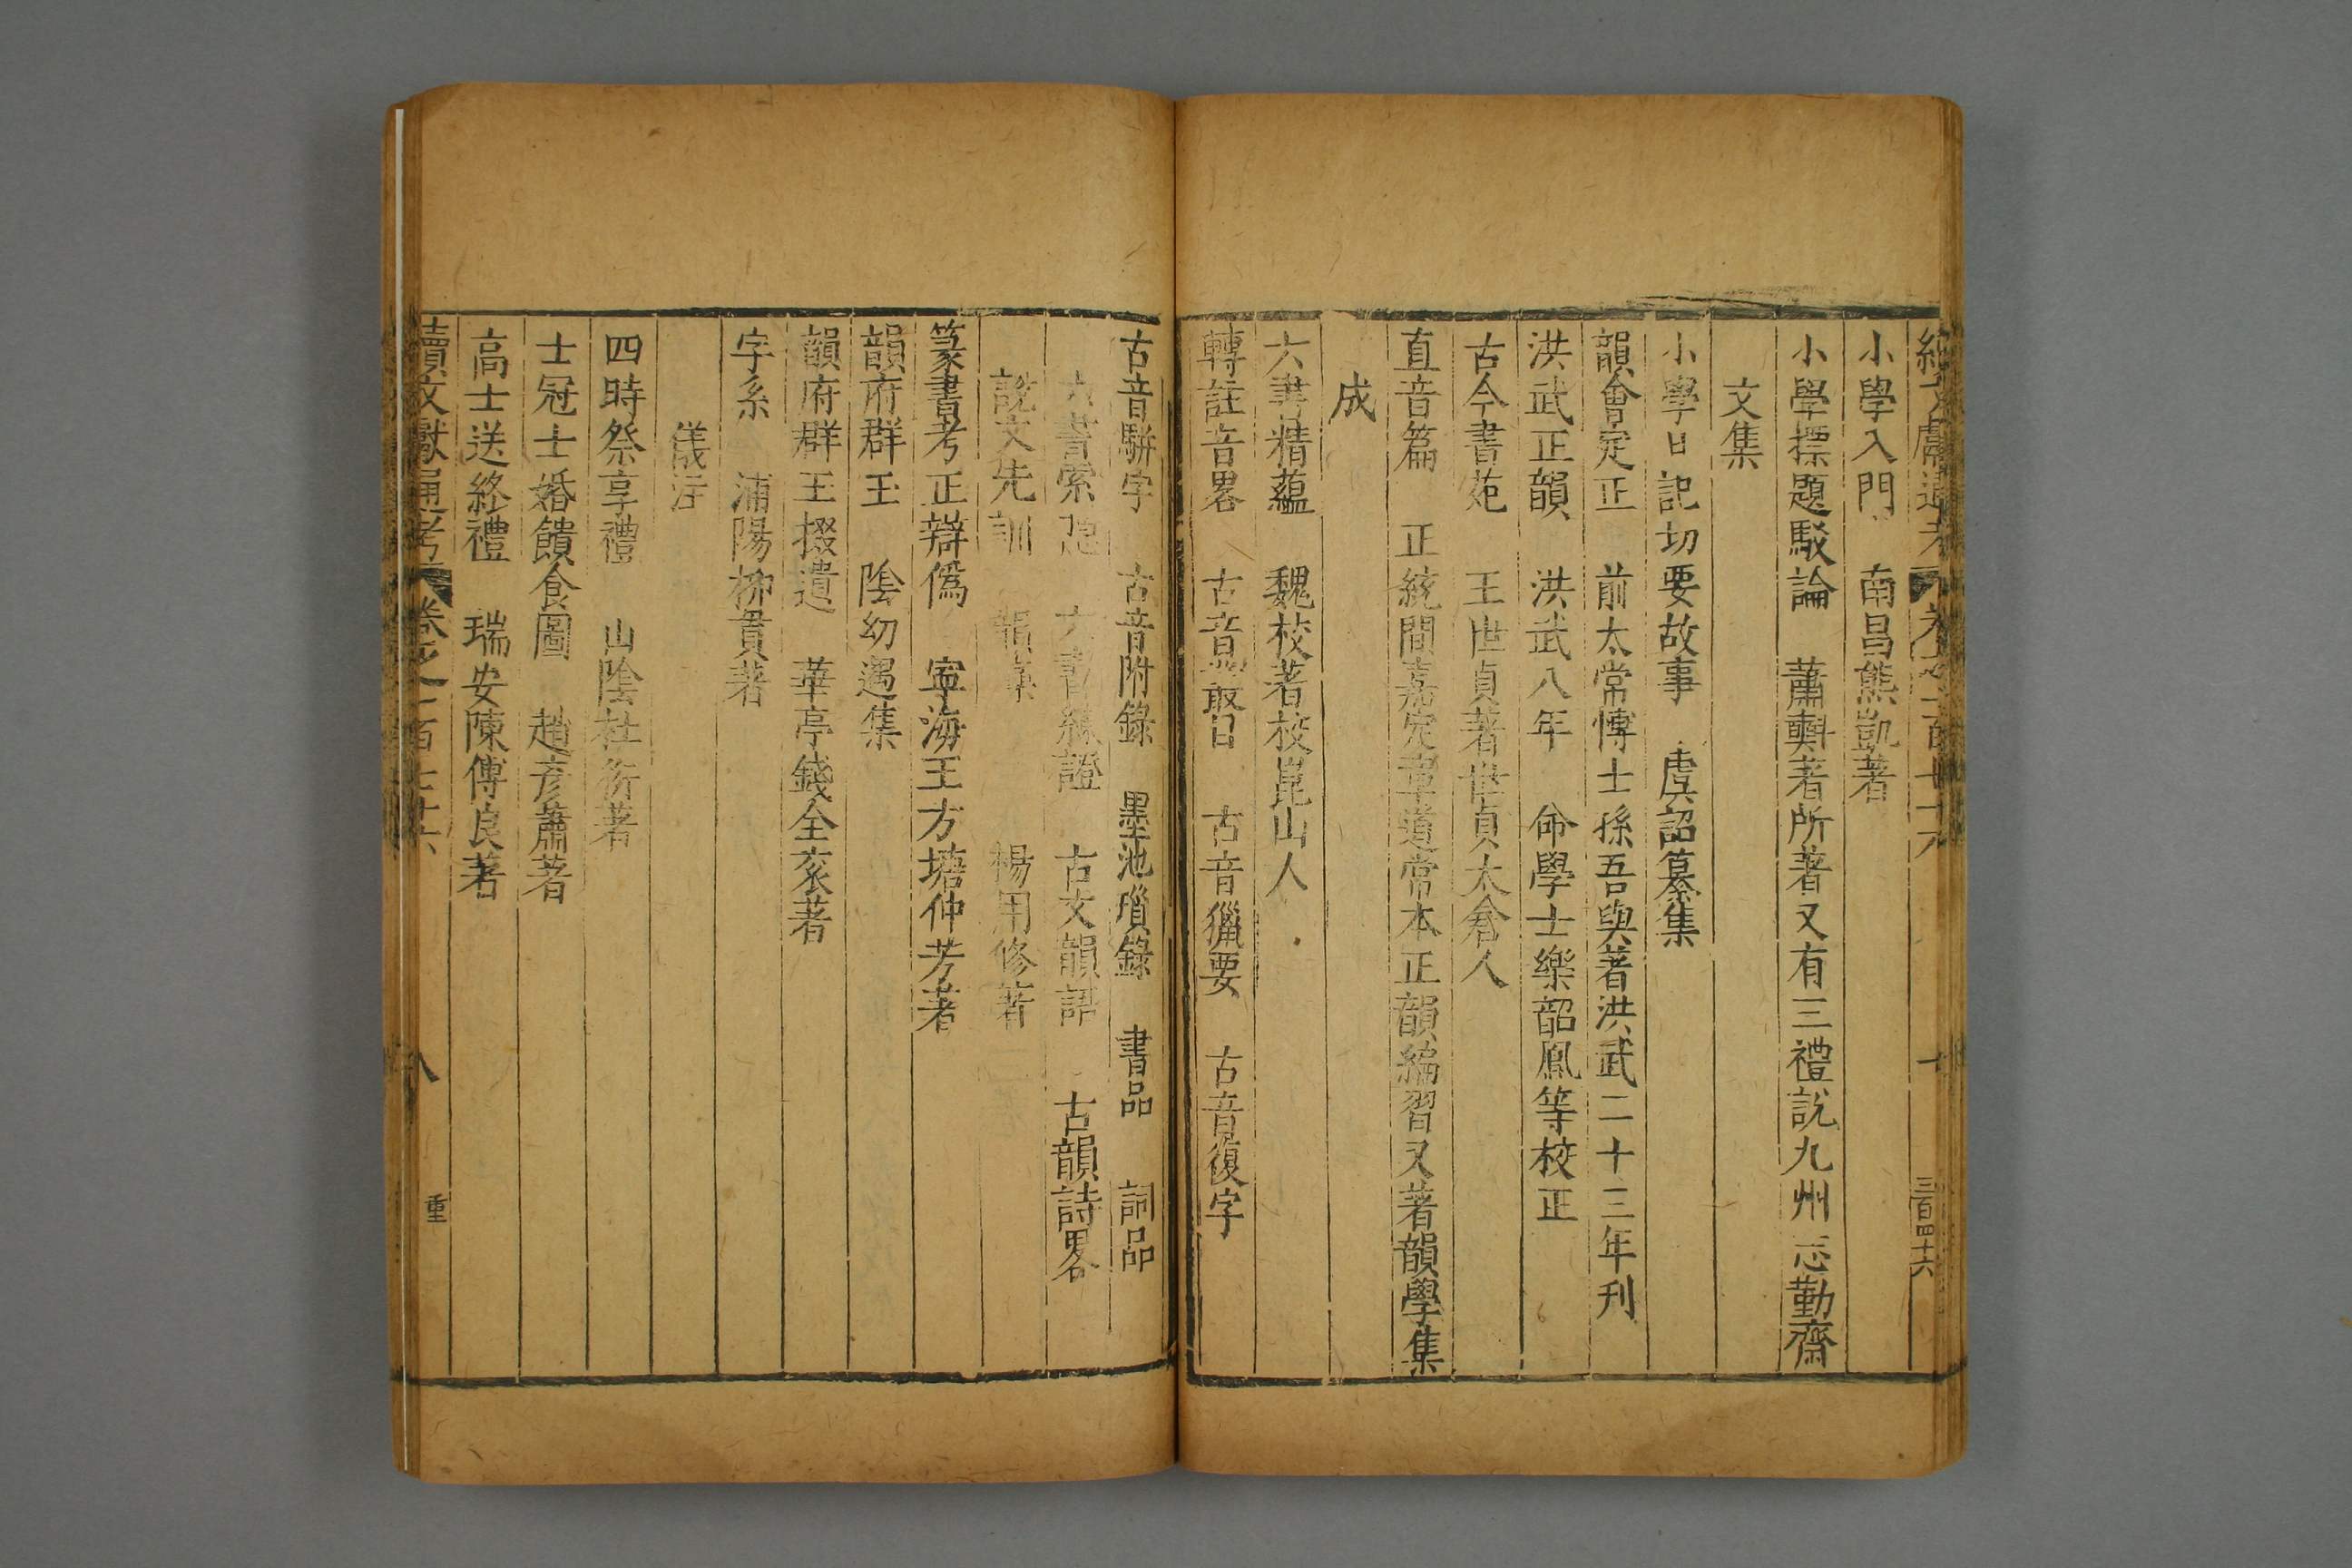 小學入門 南昌熊凱著
小學標題駁論 蕭㪺著所著又有三禮説九州志勤齋
文集
小學日記切要故事 虞詔纂集
韻會定正 前太常愽士孫吾與著洪武二十三年刋
洪武正韻 洪武八年 命學士樂韶鳳等校正
古今書苑 王世貞著世貞太倉人
直音篇 正統間嘉定章道常本正韻編習又著韻學集
成
六書精蘊 魏校著校崑山人
轉註音畧 古音 古音獵要 古音復字
古音駢字 古音附錄 墨池瑣錄 書品 詞品
六書索隱 六書練證 古文韻語 古韻詩畧
説文先訓 楊用修著
篆書考正辯僞 寧海王方塘仲芳著
韻府群玉 陰幼遇集
韻府群玉掇遺 華亭錢全衮著
字系 浦陽柳貫著
儀注
四時祭享禮 山陰杜衍著
士冠士婚饋食圖 趙彦蕭著
高士送終禮 瑞安陳傅良著
續文獻通考 卷之一百七十六 八 重